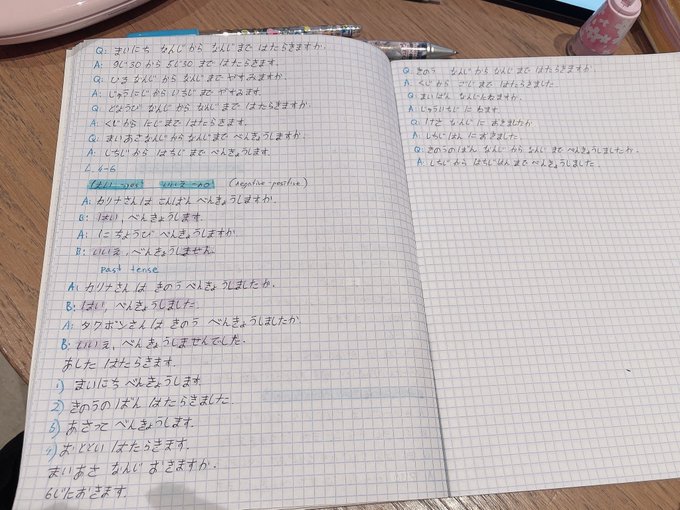 Q: まいにち なんじ から なんじ まで はたらきますか.
A: 9じ30 から 5じ30 まで はたらきます.
Q: ひる なんじ から なんじ まで やすみますか.
A: じゅうにじ から いちじ まで やすみます
Q: どようび なんじ から なんじ まで はたらきますか.
A: くじ から にじ まで はたらきます.
Q: まいあさ なんじ から なんじ まで べんきょうしますか.
A: しちじ から はちじ まで べんきょうします.
L. 4-6
(はい →yes) いいえ → no (negative-positive)
A: カリナさんは こんばん べんきょうしますか.
B: はい, べんきょうします.
A: にちようび べんきょうしますか
B: いいえ, べんきょうしません.
past tense
A: カリナさん は きのう べんきょうしましたか.
B: はい, べんきょうしました.
A: タワポンさん は きのう べんきょうしましたか.
B: いいえ, べんきょうしませんでした.
あした はたらきます.
1) まいにち べんきょうします
2) きのうの ばん はたらきました
3) あさって べんきょうします.
4) おととい はたらきます.
まいあさ なんじ おきますか.
6じにおきます.
Q: きのう なんじ から なんじ まで はたらきますか.
A: くじ から ごじ まで はたらきました
Q: まいばん なんじ ねますか.
A: じゅういちじ に ねます.
Q: けさ なんじ に おきましたか
A: しちじ はん に おきました.
Q: きのうの ばん なんじ から なんじ まで べんきょうしましたか.
A: しちじ から はちじ はん まで べんきょうしました.